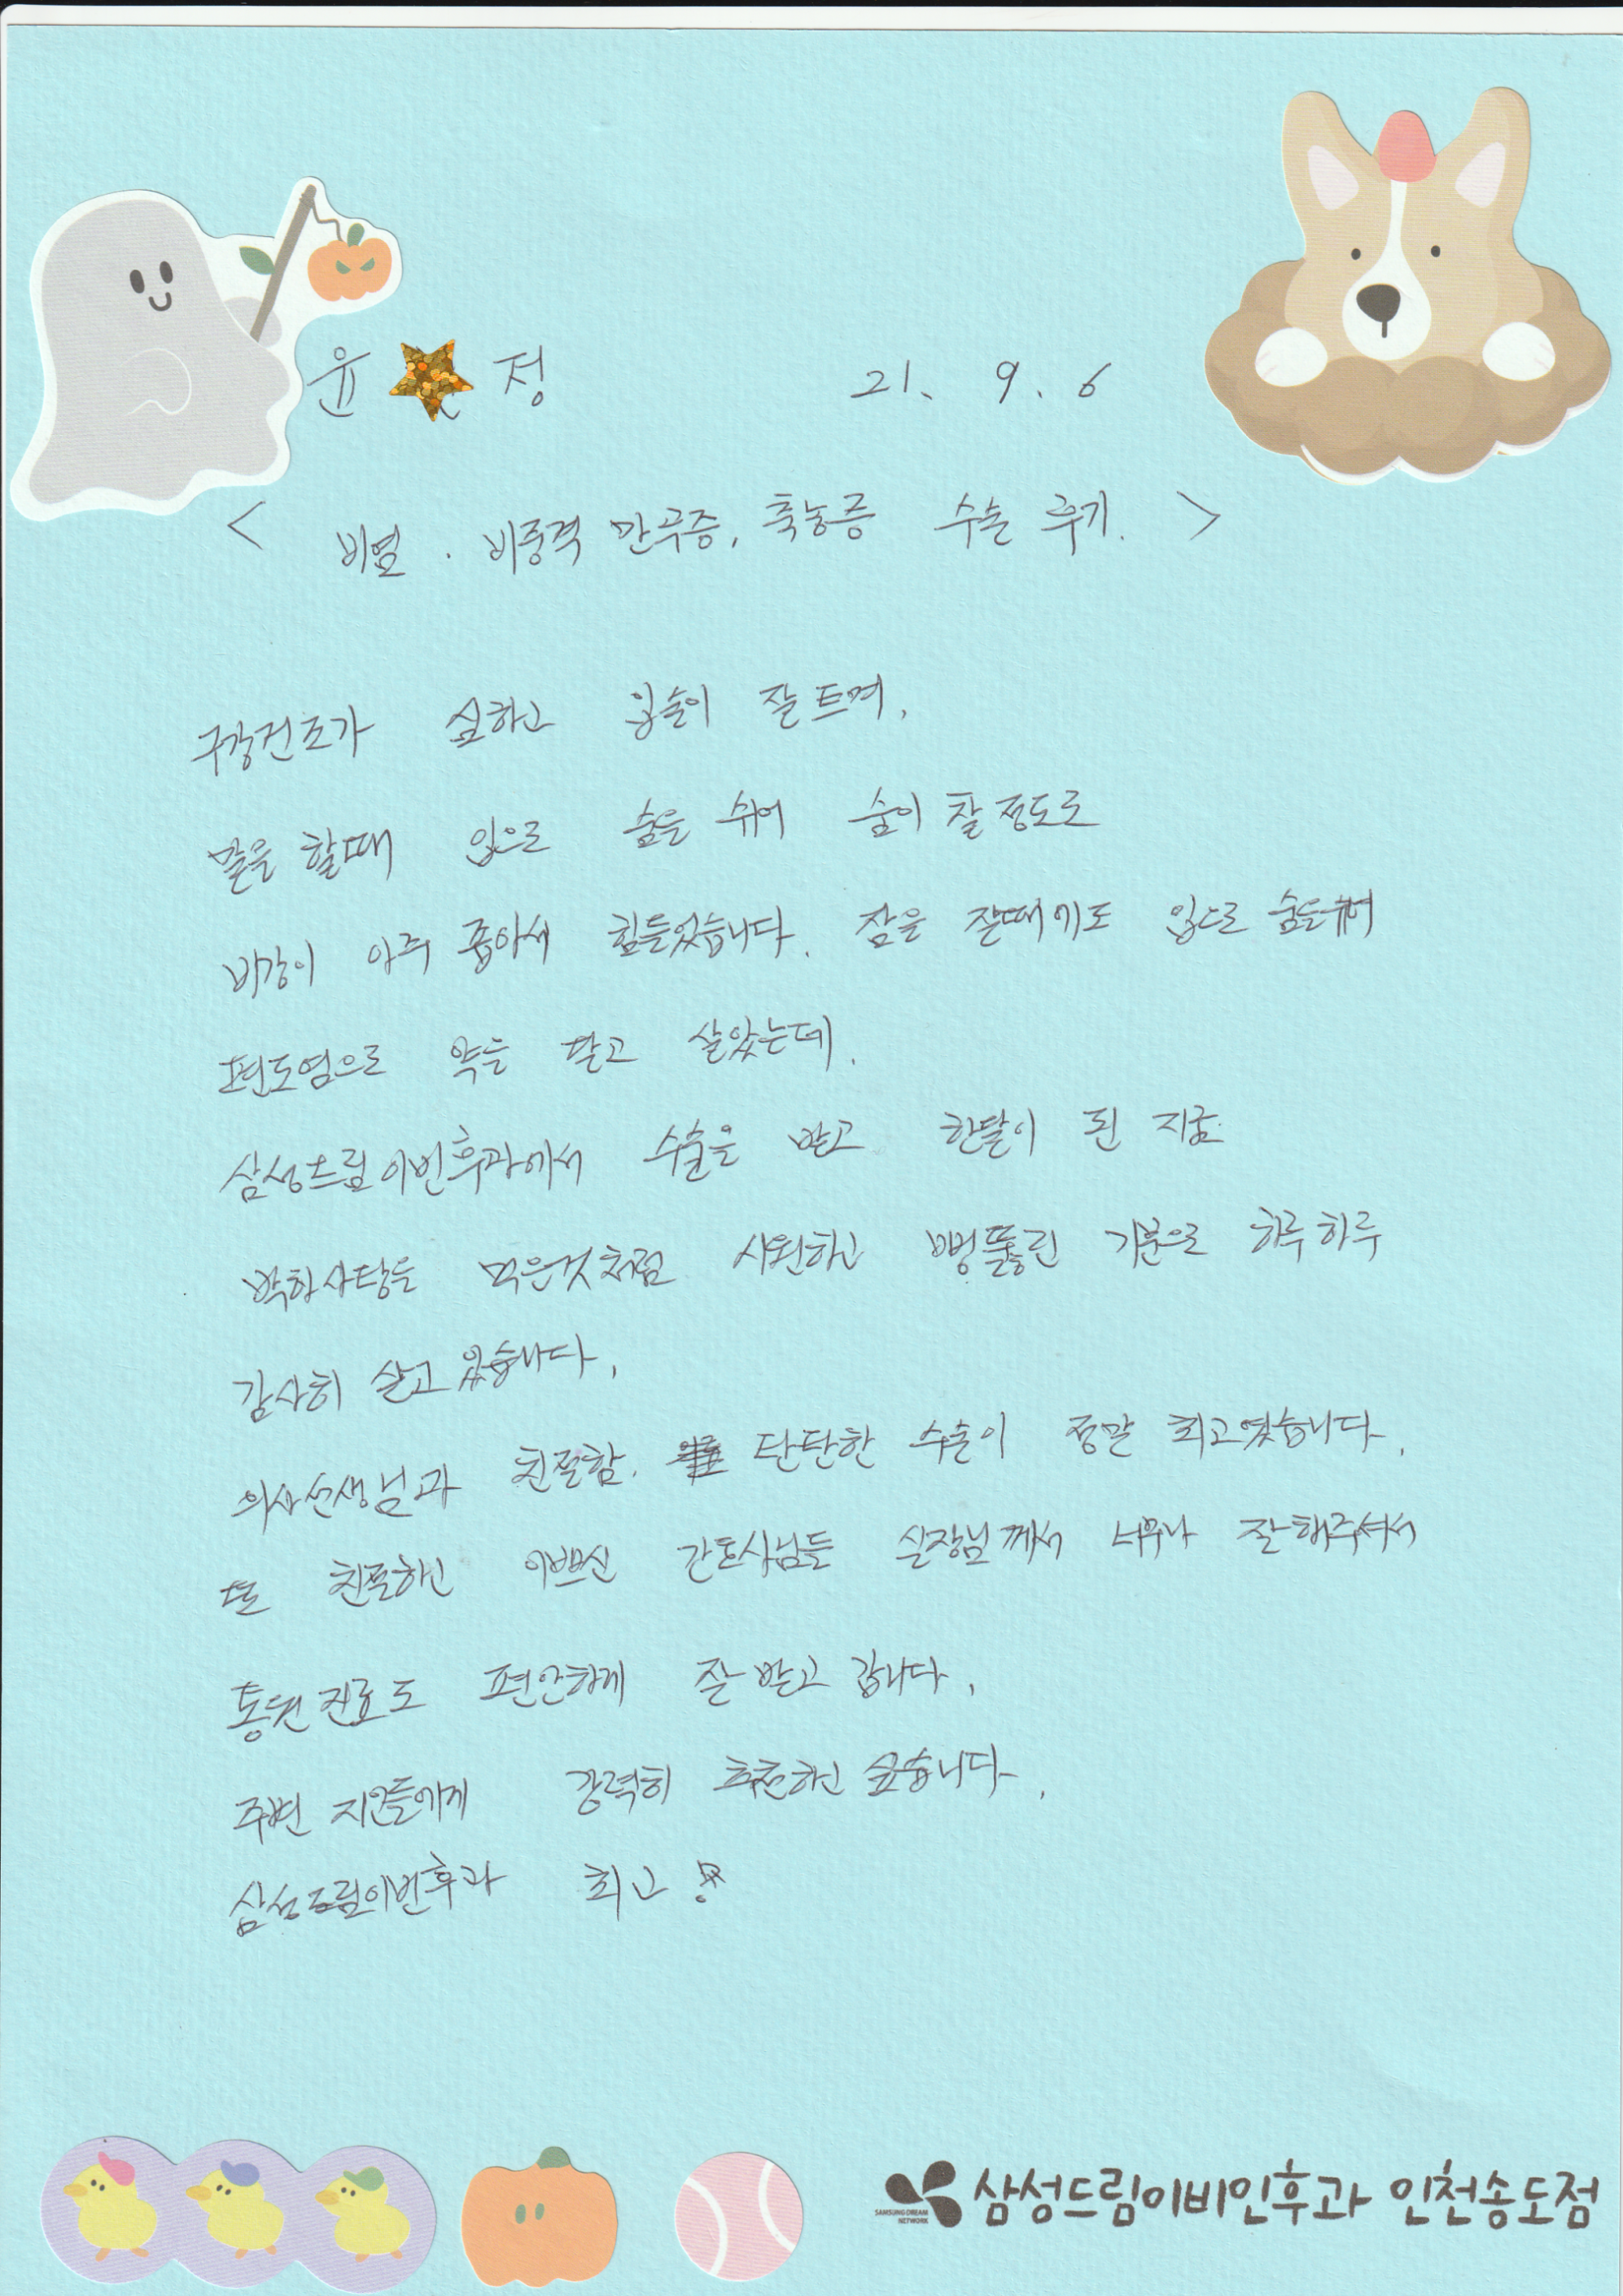 윤 정 21. 9. 6
< 비염 . 비중격 만곡증, 축농증 수술 후기. >
구강건조가 심하고 입술이 잘 트며,
말을 할때 입으로 숨을 쉬어 숨이 찰 정도로
비강이 아주 좁아서 힘들었습니다. 잠을 잘때에도 입으로 숨을쉬어
편도염으로 약을 달고 살았는데.
삼성드림이빈후과에서 수술을 받고 한달이 된 지금
박하사탕을 먹은것처럼 시원하고 뻥뚫린 기분으로 하루하루
감사히 살고 있습니다.
의사선생님과 친절함. 단단한 수술이 정말 최고였습니다.
또 친절하신 이쁘신 간호사님들 실장님께서 너무나 잘해주셔서
통원진료도 편안하게 잘 받고 갑니다.
주변 지인들에게 강력히 추천하고 싶습니다.
삼성드림이빈후과 최고!
SAMSUNG DREAM NETWORK 삼성드림이비인후과 인천송도점